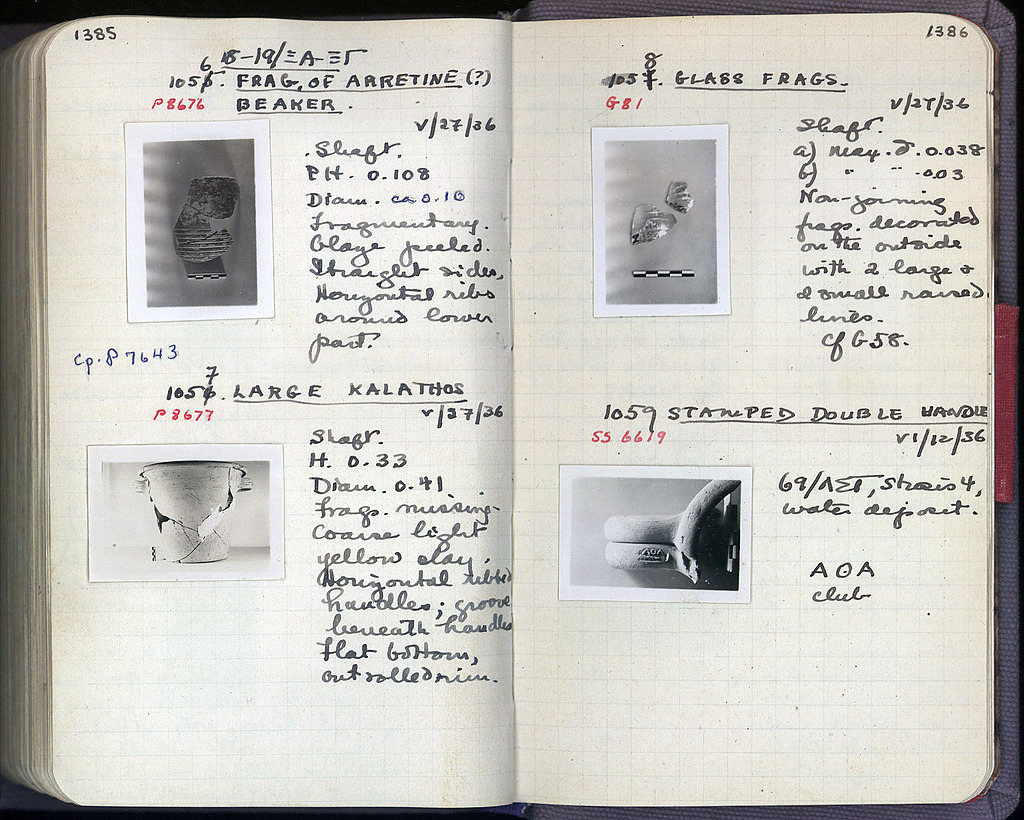 1385
18-19/ΞΑ-ΞΓ
6
1055. FRAG. OF ARRETINE (?)
P 8676 BEAKER.
V/27/36
Shaft.
PH. 0.108
Diam. ca 0.10
Fragmentary.
Glaze peeled.
Straight sides,
Horizontal ribs
around lower
part.
Cp. P 7643
7
1056. LARGE KALATHOS
P 8677
V/27/36
Shaft.
H. 0.33
Diam. 0.41
Frags. missing.
Coarse light
yellow clay.
Horizontal ribbed
handles; groove
beneath handles
Flat bottom,
out rolled rim.
1386
8
1057. GLASS FRAGS.
G 81
V/27/36
Shaft.
a) Max. d. 0.038
b) " " 0.03
Non-joining
frags. decorated
on the outside
with 2 large &
2 small raised
lines.
cf G 58.
1059 STAMPED DOUBLE HANDLE
SS 6619
VI/12/36
69/ΛΣΤ,
water deposit.
ΑΘΑ
club